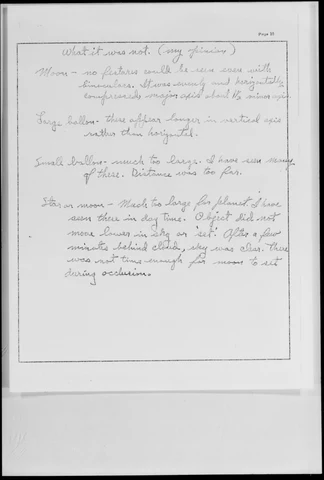 Page 35
What it was not. (my opinion)
Moon - no features could be seen even with
binoculars. It was evenly and horizontally
compressed major axis about 1½ minor axis
Large ballon - these appear longer in vertical axis
rather than horizontal.
Small ballon - much to large. I have seen many
of these. Distance was too far.
Star or moon - Much to large for planet I have
seen these in day time. Object did not
move lower in sky or 'set'. After a few
minutes behind clouds, sky was clear. There
was not time enough for moon to set
during occlusion.